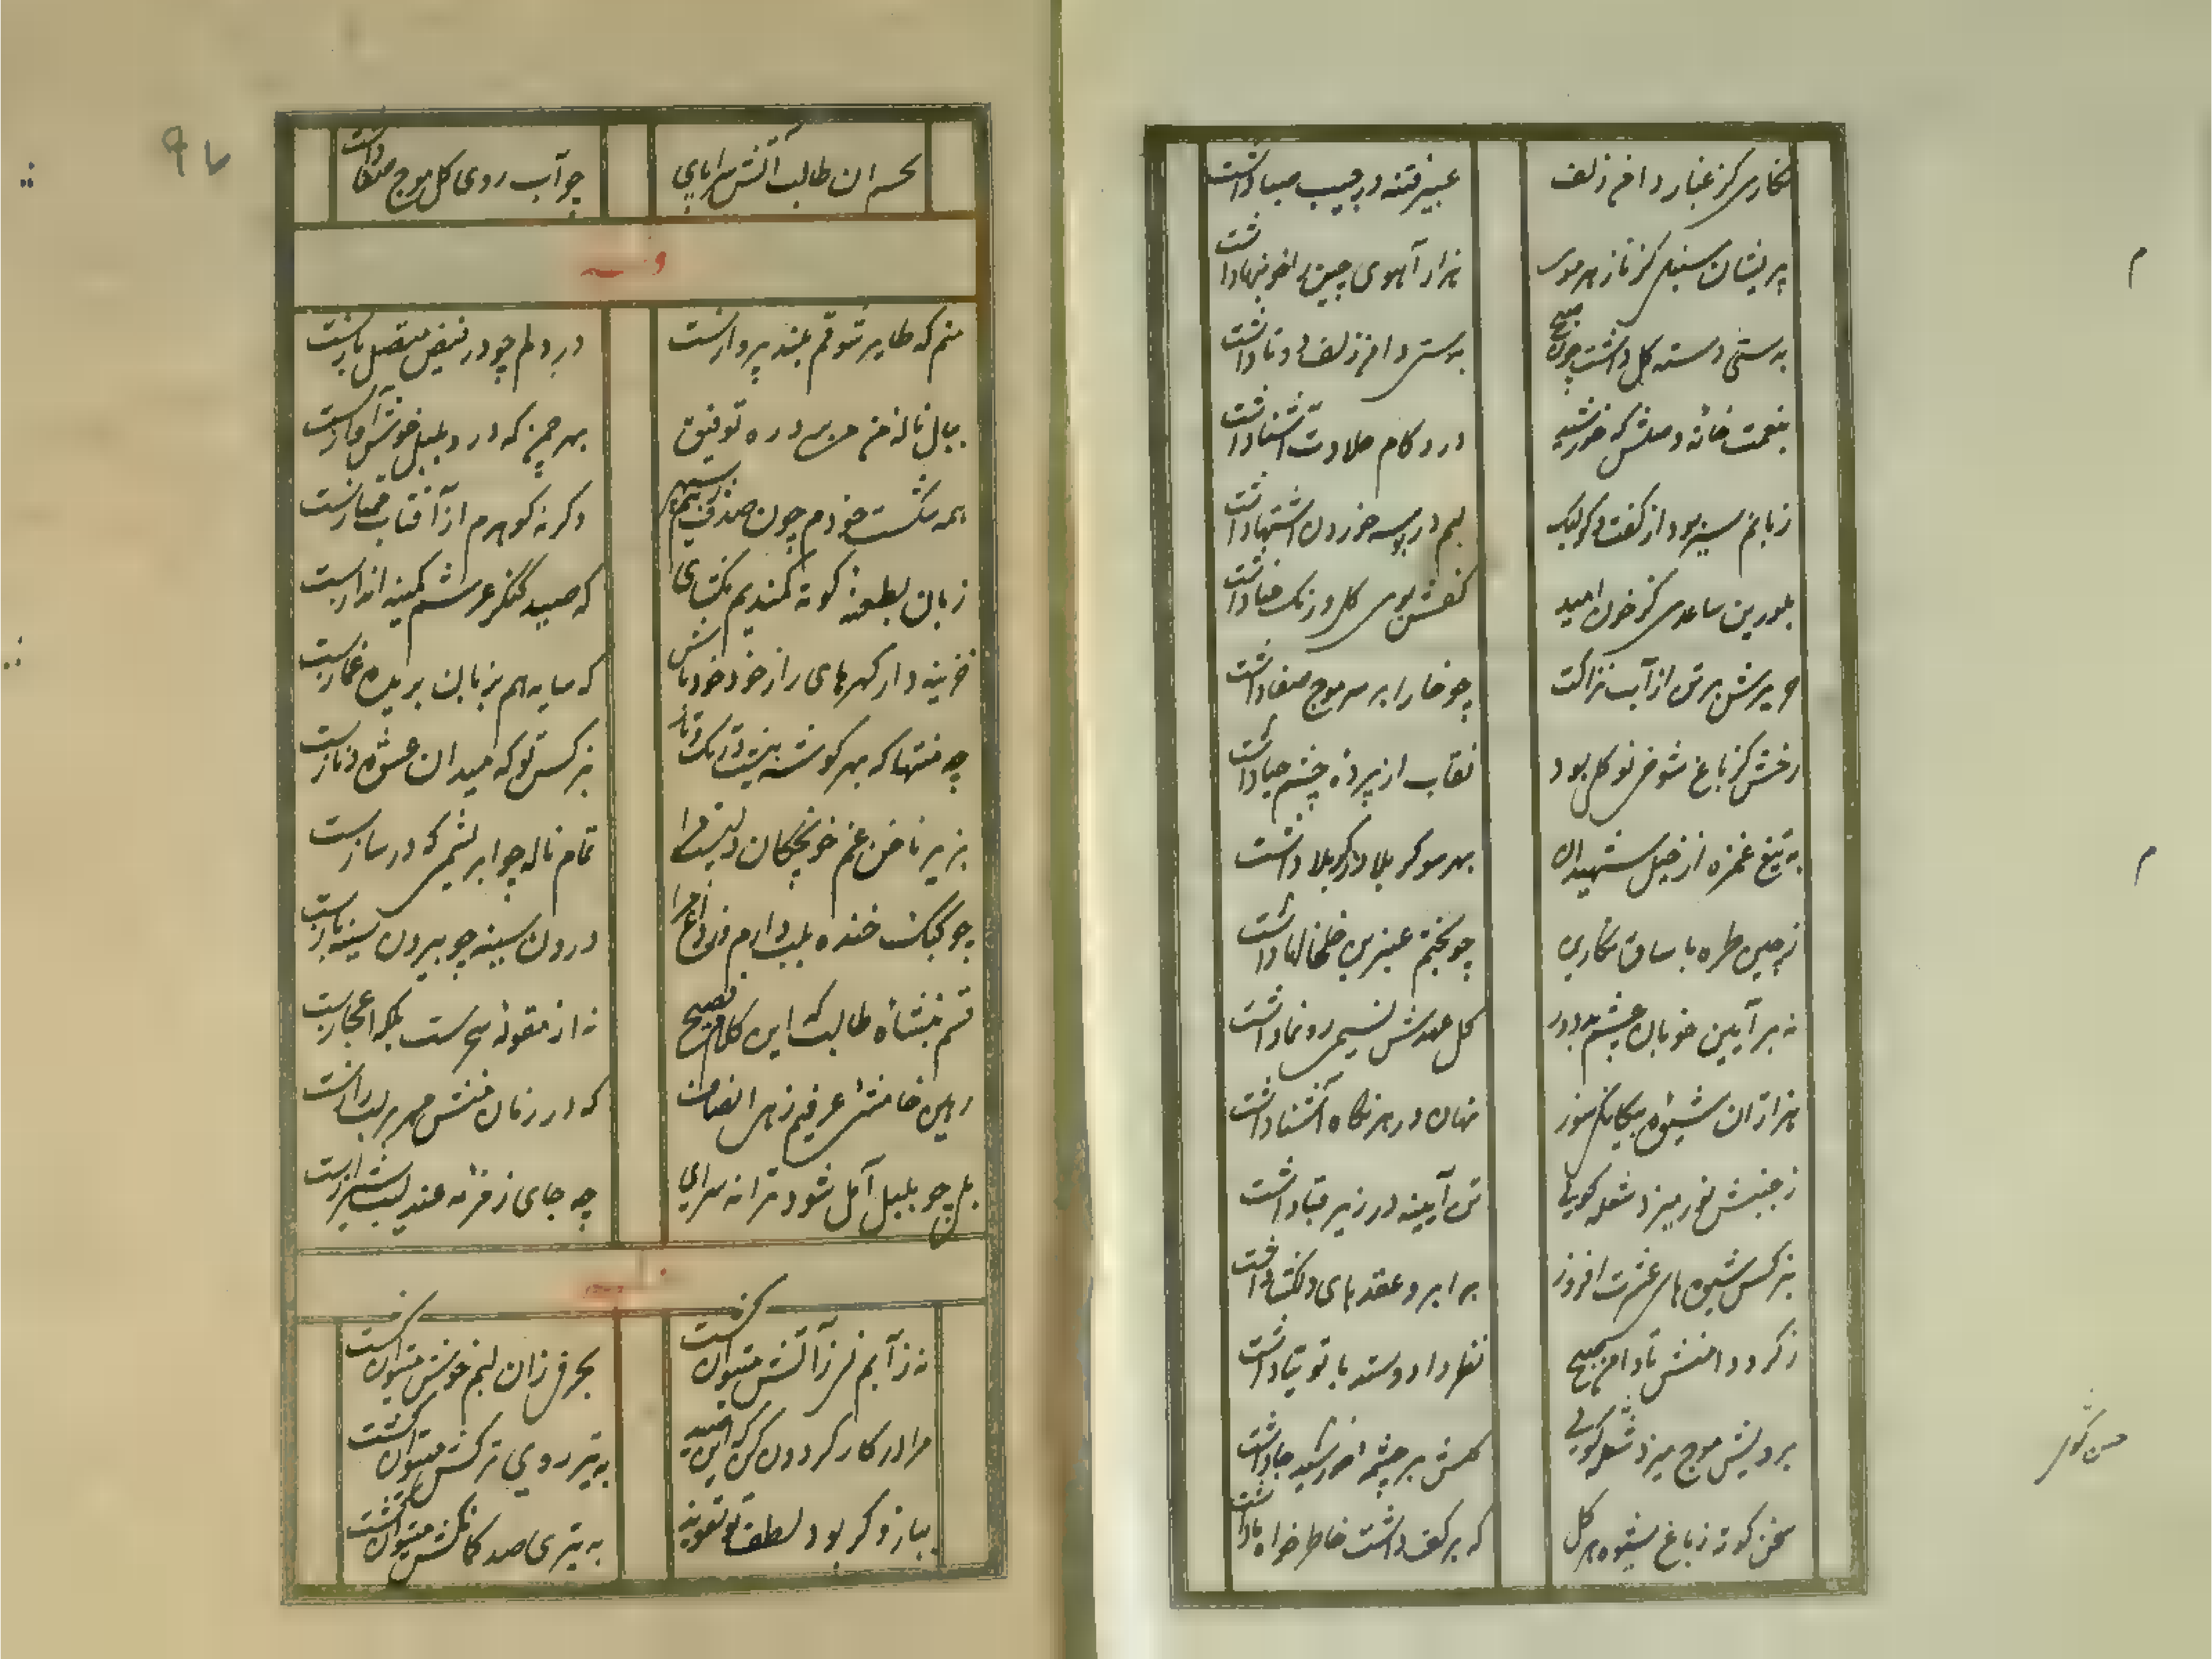 نگاری کز غبار دامن زلف
عبیر فتنه در جیب صبا داشت
پریشان سنبلی کز ناز هر موی
هزار آهوی چین را خونبها داشت
به دستی دسته گل داشت چون صبح
به دستی دامن زلف دوتا داشت
بنعمت خانه وصلش که خورشید
درو کام حلاوت آشنا داشت
زبانم سیر بود از گفت و گو لیک
لبم در بوسه خوردن اشتها داشت
بلورین ساعدی کز خون امید
کفش بوی گل و رنگ حنا داشت
حریرش بر تن از آب نزاکت
چو خارا بر سر موج صفا داشت
رخش کز باغ شوخی نو گلی بود
نقاب از پرده چشم حیا داشت
به تیغ غمزه از خیل شهیدان
بهر سو کربلا در کربلا داشت
ز چین طره با ساق نگارین
چو بختم عنبرین خلخالها داشت
نه بر آیین خوبان چشم بد دور
گل عهدش نسیمی رو نما داشت
هزاران شیوه بیگانگی سوز
نهان در هر نگاه آشنا داشت
ز جنبش نور میزد شعله گویا
تن آیینه در زیر قبا داشت
بنرگس شیوه های عشرت افروز
بر ابرو عقدهای دلگشا داشت
ز گرد دامنش تا دامن صبح
نظر داد و ستد با توتیا داشت
برویش موج میزد شعله گویی
گلش بر چشمه خورشید جا داشت
سخن کوته ز باغ شیوه هر گل
که بر کف داشت خاطرخواه ما داشت
م
م
۹۷
بحسر ان طالب آتش سراپای
چو آب روی گل موج صفا داشت
وله
منم که طایر شوقم بلند پروازست
در دلم چو در فیض متصل بازست
ببال ناله من می در ره توفیق
بهر چمن که درو بلبل خوش آوازست
همه شکست خودم چون صدف
وگرنه گوهرم از آفتاب ممتازست
زبان بطعنه کوته کمندیم مگشای
که صید کنگر عرشم کمینه اندازست
خزینه دار گهرهای راز خود خود باش
که سایه هم بزبان بریده غمازست
چه فتنها که بهر گوشه
بنرگس تو که میدان عشوه و نازست
بزیر ناخن غم خونچکان دلیست مرا
تمام ناله چو ابریشمی که در سازست
چو کبک خنده بلب دارم
درون سینه چو بیرون سینه بازست
قسم بنشاه طالب که این کلام فصیح
نه از مقوله سحرست بلکه اعجازست
رهین خامشی عرفیم زهی انصاف
که در زمان منش مهر بر لب رازست
بلی چو بلبل آمل شود ترانه سرای
چه جای زمزمه عندلیب شیرازست
وله
نه ز آبم نی ز آتش میتوان کشت
بحرفی زان لبم خوش میتوان کشت
مرا در کار گردون کن که این صید
به تیر روی ترکش میتوان کشت
ببازو گر بود لطف تو تعویذ
به تیری صد کمانکش میتوان کشت